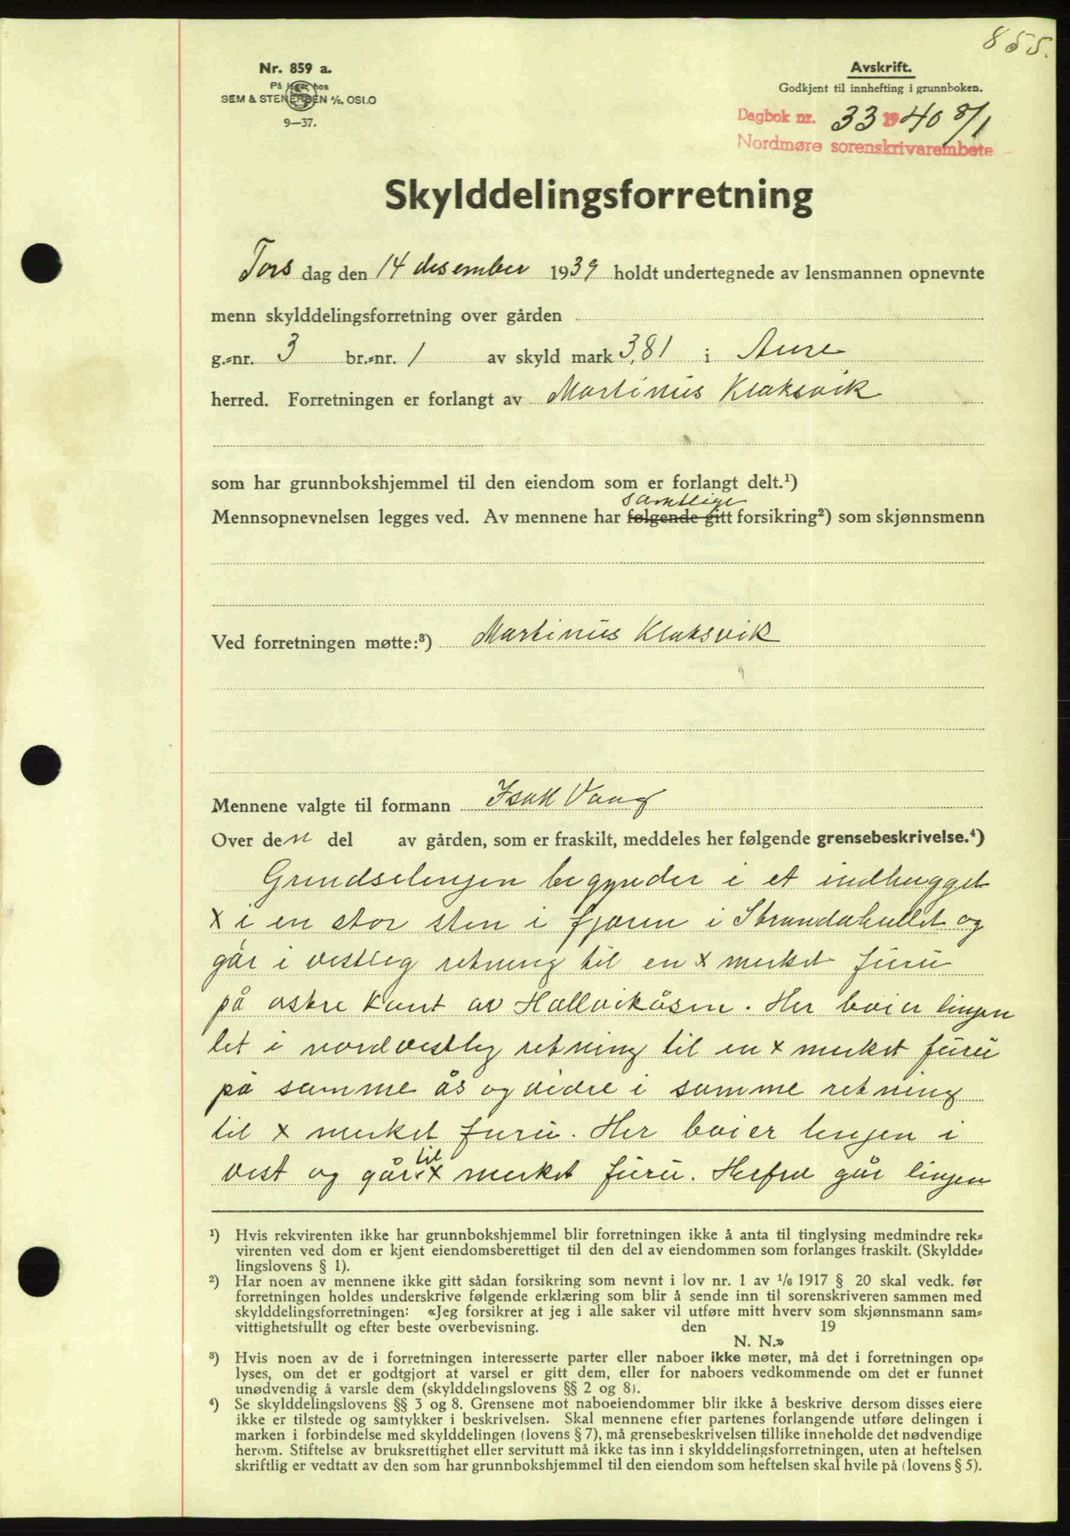 855.
Nr. 859 a.
På lager hos
SEM & STENERSEN A/S, OSLO
9—37.
Avskrift.
Godkjent til innhefting i grunnboken.
Dagbok nr. 33 1940 8/1
Nordmøre sorenskrivarembete
Skylddelingsforretning
Tors dag den 14 desember 1939 holdt undertegnede av lensmannen opnevnte
menn skylddelingsforretning over gården
g.-nr. 3 br.-nr. 1 av skyld mark 3,81 i Aure
herred. Forretningen er forlangt av Martinus Klaksvik
som har grunnbokshjemmel til den eiendom som er forlangt delt.¹)
samtlige
Mennsopnevnelsen legges ved. Av mennene har følgende gitt forsikring²) som skjønnsmenn
Ved forretningen møtte:³) Martinus Klaksvik
Mennene valgte til formann Isak Vaag
Over den del av gården, som er fraskilt, meddeles her følgende grensebeskrivelse.⁴)
Grendselinjen begynder i et indhugget
x i en stor sten i fjæren i Strandahullet og
går i vestlig retning til en x merket furu
på østre kant av Hallvikåsen. Her bøier linjen
let i nordvestlig retning til en x merket furu
på samme ås og vidre i samme retning
til x merket furu. Her bøier linjen i
vest og går til x merket furu. Herfra går linjen
¹) Hvis rekvirenten ikke har grunnbokshjemmel blir forretningen ikke å anta til tinglysing medmindre rek-
virenten ved dom er kjent eiendomsberettiget til den del av eiendommen som forlanges fraskilt. (Skyldde-
lingslovens § 1).
²) Har noen av mennene ikke gitt sådan forsikring som nevnt i lov nr. 1 av 1/6 1917 § 20 skal vedk. før
forretningen holdes underskrive følgende erklæring som blir å sende inn til sorenskriveren sammen med
skylddelingsforretningen: «Jeg forsikrer at jeg i alle saker vil utføre mitt hverv som skjønnsmann sam-
vittighetsfullt og efter beste overbevisning. den 19
N. N.»
³) Hvis noen av de i forretningen interesserte parter eller naboer ikke møter, må det i forretningen op-
lyses, om det er godtgjort at varsel er gitt dem, eller for naboers vedkommende om det er funnet
unødvendig å varsle dem (skylddelingslovens §§ 2 og 8).
⁴) Se skylddelingslovens §§ 3 og 8. Grensene mot naboeiendommer blir ikke å beskrive dersom disses eiere
ikke er tilstede og samtykker i beskrivelsen. Skal mennene efter partenes forlangende utføre delingen i
marken i forbindelse med skylddelingen (lovens § 7), må grensebeskrivelsen tillike inneholde det nødvendige
herom. Stiftelse av bruksrettighet eller servitutt må ikke tas inn i skylddelingsforretningen, uten at heftelsen
skriftlig er vedtatt av den som har grunnbokshjemmel til den eiendom som heftelsen skal hvile på (lovens § 5).